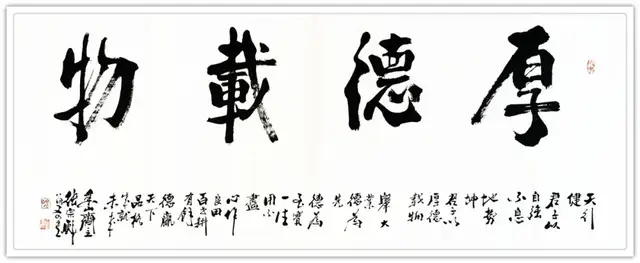 厚德載物
天行
健
君子以
自強
不息
地勢
坤
君子以
厚德
載物
舉大
業
德為
先
德為
至寶
一生
用不
盡
心作
良田
百世耕
有餘
德贏
天下
品格
成就
未來